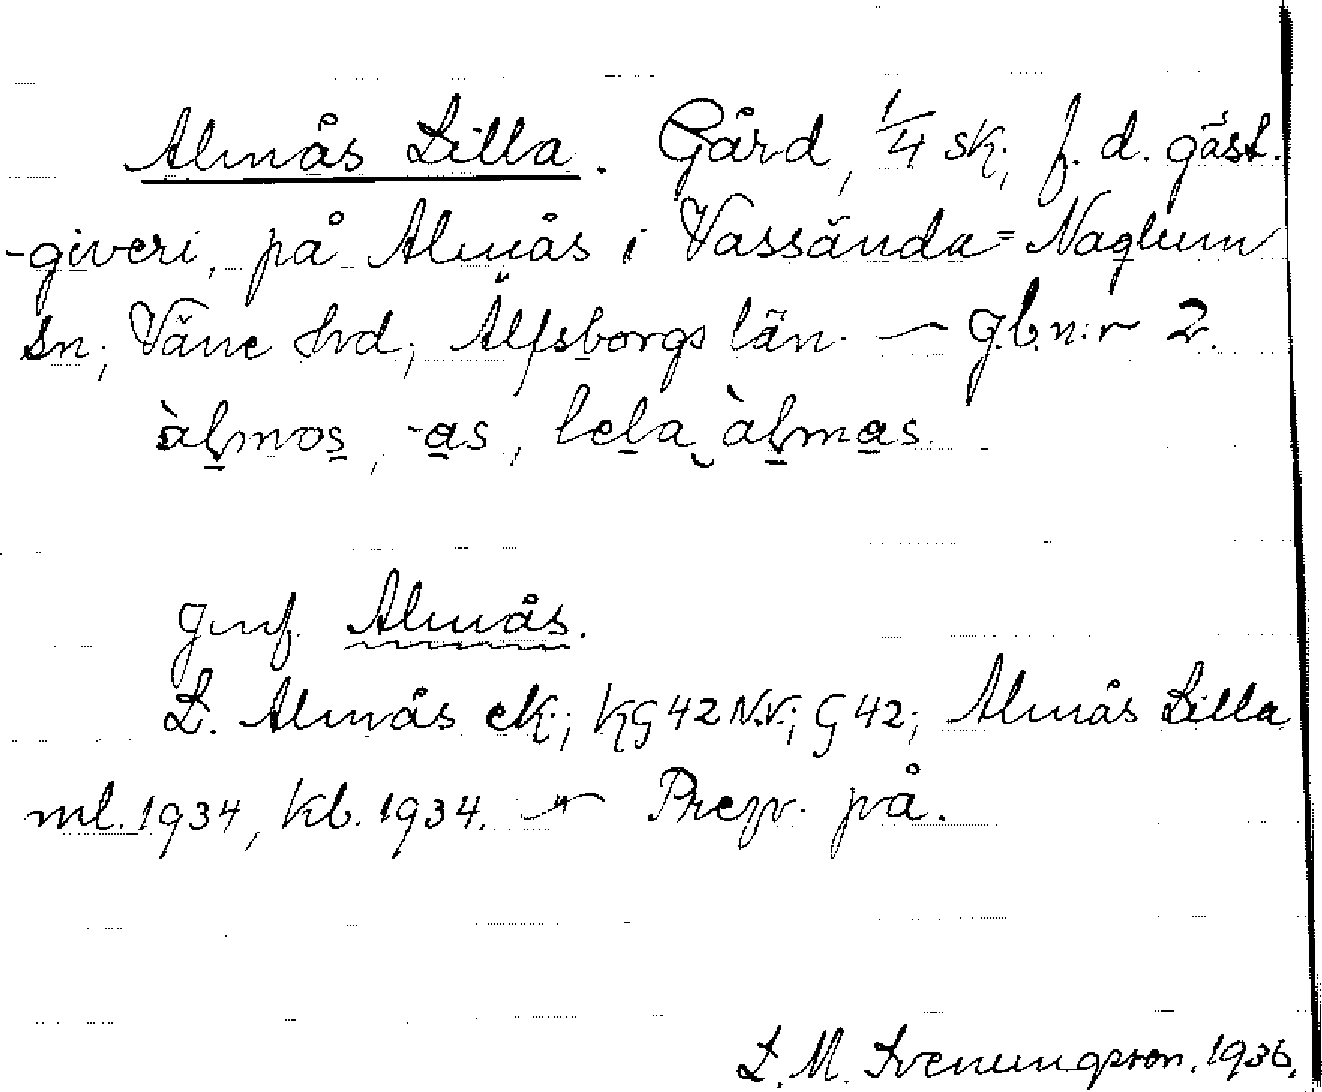 Almås Lilla. Gård, 1/4 sk; f. d. gäst-
-giveri, på Almås i Vassända=Naglum
sn; Väne hrd; Älfsborgs län. — g.b.n:r 2.
àlmos, -as, lela àlmas.
Jmf. Almås.
L. Almås ek.; KG 42 N.V.; G 42; Almås Lilla
ml. 1934, kb. 1934. — Prep. på.
L. M. Svenungsson. 1936.